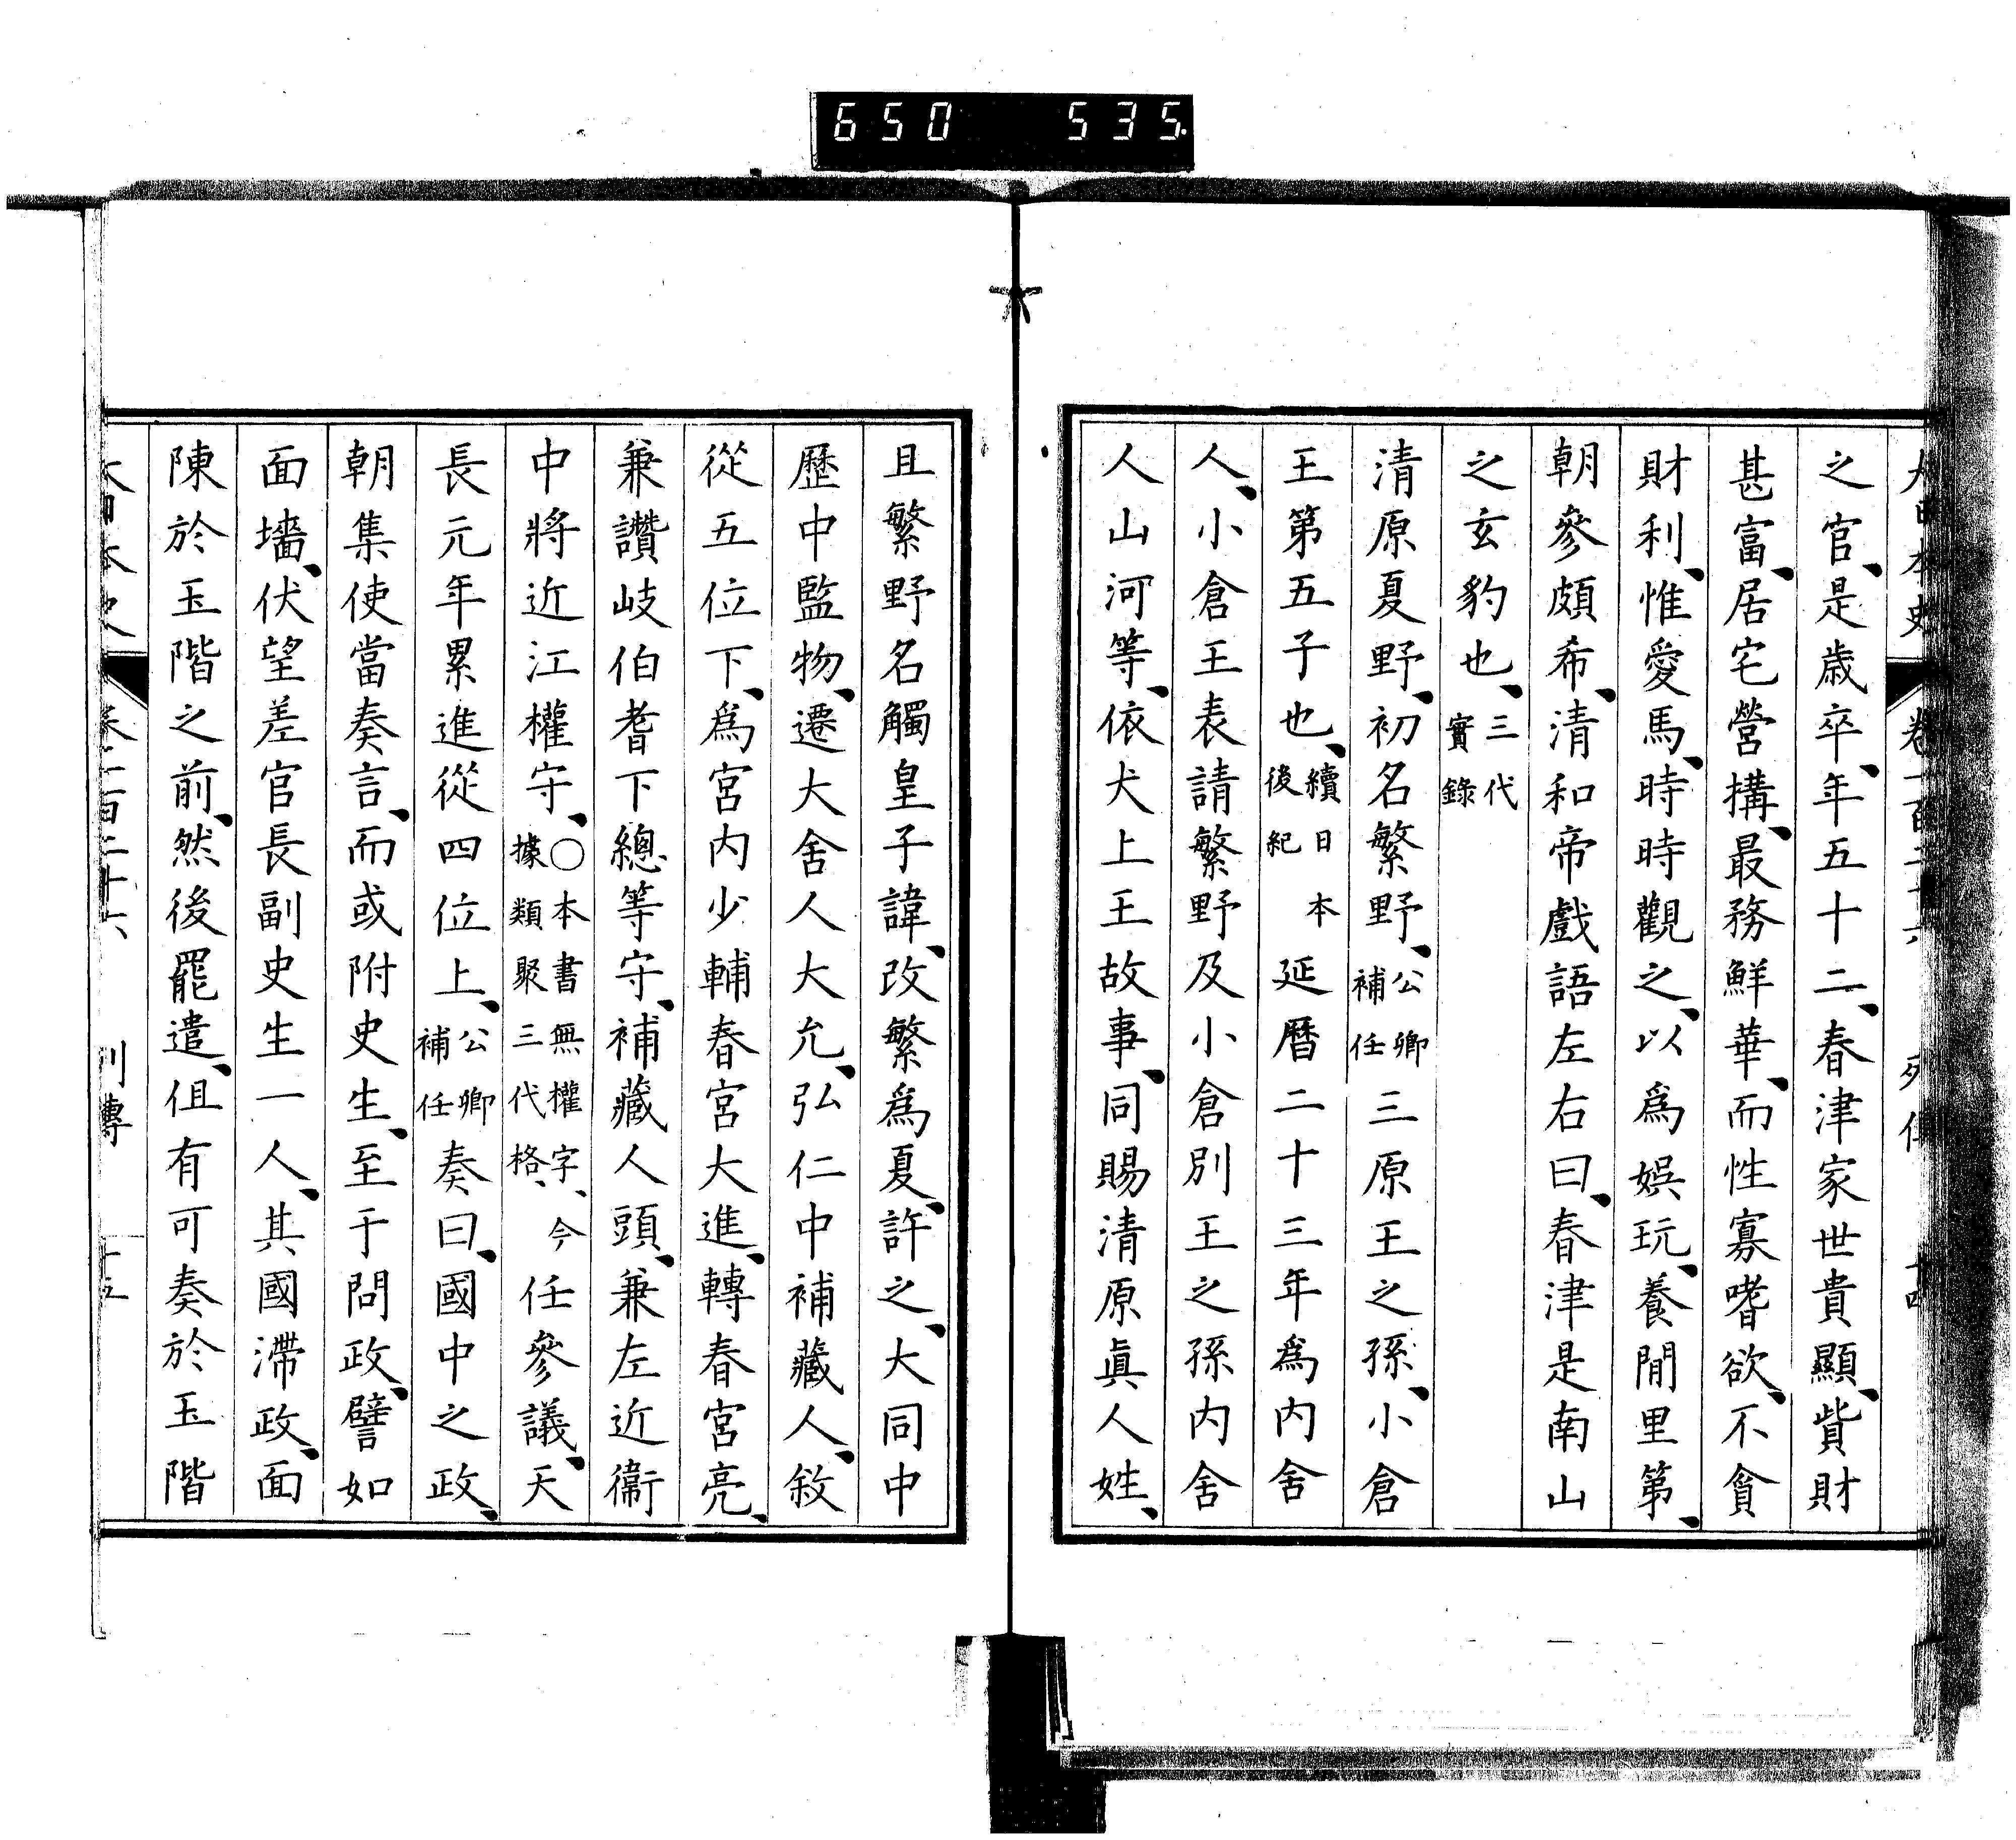 650 535
大日本史 卷一百二十六 列傳 十四
之官、是歲卒、年五十二、春津家世貴顯、貲財
甚富、居宅營搆、最務鮮華、而性寡嗜欲、不貪
財利、惟愛馬、時時觀之、以爲娛玩、養閒里第、
朝參頗希、清和帝戲語左右曰、春津是南山
之玄豹也、三代實錄
清原夏野、初名繁野、公卿補任三原王之孫、小倉
王第五子也、續日本後紀延曆二十三年爲內舍
人、小倉王表請繁野及小倉別王之孫內舍
人山河等、依犬上王故事、同賜清原眞人姓、
且繁野名觸皇子諱、改繁爲夏、許之、大同中
歷中監物、遷大舍人大允、弘仁中補藏人、敘
從五位下、爲宮內少輔春宮大進、轉春宮亮、
兼讚岐伯耆下總等守、補藏人頭、兼左近衞
中將近江權守、○本書無權字、今據類聚三代格、任參議、天
長元年累進從四位上、公卿補任奏曰、國中之政、
朝集使當奏言、而或附史生、至于問政、譬如
面墻、伏望差官長副史生一人、其國滯政、面
陳於玉階之前、然後罷遣、但有可奏於玉階
大日本史 卷一百二十六 列傳 十五